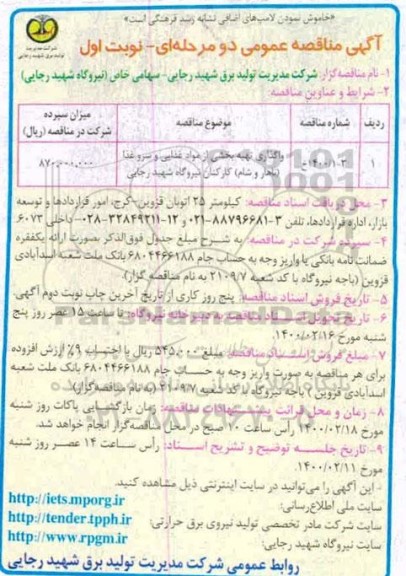 «خاموش نمودن لامپ‌های اضافی نشانه رشد فرهنگی است»
آگهی مناقصه عمومی دو مرحله‌ای- نوبت اول
شرکت مدیریت
تولید برق شهید رجایی
۱- نام مناقصه‌گزار: شرکت مدیریت تولید برق شهید رجایی- سهامی خاص (نیروگاه شهید رجایی)
۲- شرایط و عناوین مناقصه:
ردیف شماره مناقصه موضوع مناقصه میزان سپرده شرکت در مناقصه (ریال)
۱ ۱۴۰۰/۱-۳ واگذاری تهیه بخشی از مواد غذایی و سرو غذا (ناهار و شام) کارکنان نیروگاه شهید رجایی ۸۷۰,۰۰۰,۰۰۰
۳- محل دریافت اسناد مناقصه: کیلومتر ۲۵ اتوبان قزوین-کرج، امور قراردادها و توسعه
بازار، اداره قراردادها، تلفن ۳-۸۸۷۹۶۶۸۱-۰۲۱ و ۱۲-۳۲۸۴۹۲۱۱-۰۲۸ داخلی ۶۰۷۳
۴- سپرده شرکت در مناقصه: به شرح مبلغ جدول فوق‌الذکر بصورت ارائه یکفقره
ضمانت نامه بانکی یا واریز وجه به حساب جام ۶۸۰۴۴۶۶۱۸۸ بانک ملت شعبه اسدآبادی
قزوین (باجه نیروگاه با کد شعبه ۲۱۰۹/۷ به نام مناقصه گزار)
۵- تاریخ فروش اسناد مناقصه: پنج روز کاری از تاریخ آخرین چاپ نوبت دوم آگهی.
۶- تاریخ تحویل اسناد مناقصه به دبیرخانه نیروگاه: تا ساعت ۱۵ عصر روز پنج
شنبه مورخ ۱۴۰۰/۰۲/۱۶
۷- مبلغ فروش اسناد مناقصه: مبلغ ۵۴۵,۰۰۰ ریال با احتساب ۹٪ ارزش افزوده
برای هر مناقصه به صورت واریز وجه به حساب جام ۶۸۰۴۴۶۶۱۸۸ بانک ملت شعبه
اسدآبادی قزوین (باجه نیروگاه با کد شعبه ۲۱۰۹/۷ به نام مناقصه‌گزار)
۸- زمان و محل قرائت پیشنهادات مناقصه: زمان بازگشایی پاکات روز شنبه
مورخ ۱۴۰۰/۰۲/۱۸ رأس ساعت ۱۰ صبح در محل مناقصه‌گزار انجام خواهد شد.
۹- تاریخ جلسه توضیح و تشریح اسناد: رأس ساعت ۱۴ عصر روز شنبه
مورخ ۱۴۰۰/۰۲/۱۱
- این آگهی را می‌توانید در سایت اینترنتی ذیل مشاهده کنید.
سایت ملی اطلاع‌رسانی: http://iets.mporg.ir
سایت شرکت مادر تخصصی تولید نیروی برق حرارتی: http://tender.tpph.ir
سایت نیروگاه شهید رجایی: http://www.rpgm.ir
روابط عمومی شرکت مدیریت تولید برق شهید رجایی